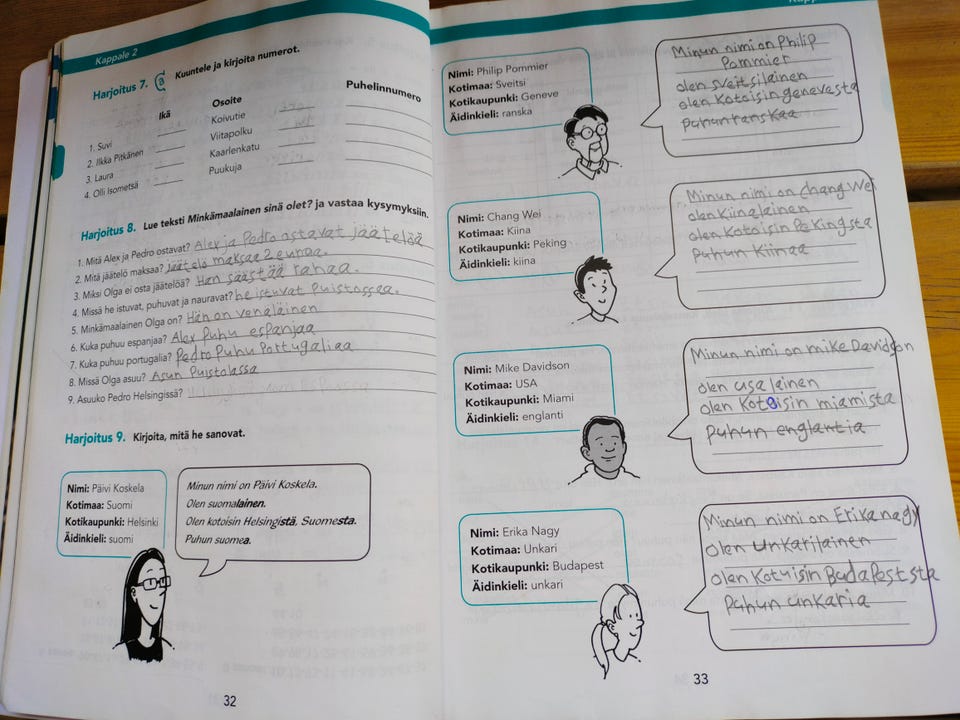 Kappale 2
Harjoitus 7. Kuuntele ja kirjoita numerot.
Ikä Osoite Puhelinnumero
1. Suvi Koivutie
2. Ilkka Pitkänen Viitapolku
3. Laura Kaarlenkatu
4. Olli Isometsä Puukuja
Harjoitus 8. Lue teksti Minkämaalainen sinä olet? ja vastaa kysymyksiin.
1. Mitä Alex ja Pedro ostavat? Alex ja Pedro ostavat jäätelöä
2. Mitä jäätelö maksaa? jäätelö maksaa 2 euroa.
3. Miksi Olga ei osta jäätelöä? Hän säästää rahaa.
4. Missä he istuvat, puhuvat ja nauravat? he istuvat puistossa.
5. Minkämaalainen Olga on? Hän on venäläinen
6. Kuka puhuu espanjaa? Alex puhu espanjaa
7. Kuka puhuu portugalia? Pedro Puhu Portugaliaa
8. Missä Olga asuu? Asun Puistolassa
9. Asuuko Pedro Helsingissä?
Harjoitus 9. Kirjoita, mitä he sanovat.
Nimi: Päivi Koskela
Kotimaa: Suomi
Kotikaupunki: Helsinki
Äidinkieli: suomi
Minun nimi on Päivi Koskela.
Olen suomalainen.
Olen kotoisin Helsingistä, Suomesta.
Puhun suomea.
32
Nimi: Philip Pommier
Kotimaa: Sveitsi
Kotikaupunki: Geneve
Äidinkieli: ranska
Minun nimi on Philip
Pommier
olen sveitsiläinen
olen Kotoisin genevesta
Puhun ranskaa
Nimi: Chang Wei
Kotimaa: Kiina
Kotikaupunki: Peking
Äidinkieli: kiina
Minun nimi on Chang Wei
olen Kiinalainen
olen Kotoisin PeKingsta
Puhun Kiinaa
Nimi: Mike Davidson
Kotimaa: USA
Kotikaupunki: Miami
Äidinkieli: englanti
Minun nimi on mike Davidson
olen usalainen
olen Kotoisin miamista
Puhun englantia
Nimi: Erika Nagy
Kotimaa: Unkari
Kotikaupunki: Budapest
Äidinkieli: unkari
Minun nimi on Erika nagy
olen unkarilainen
olen Kotoisin BudaPeststa
Puhun unkaria
33